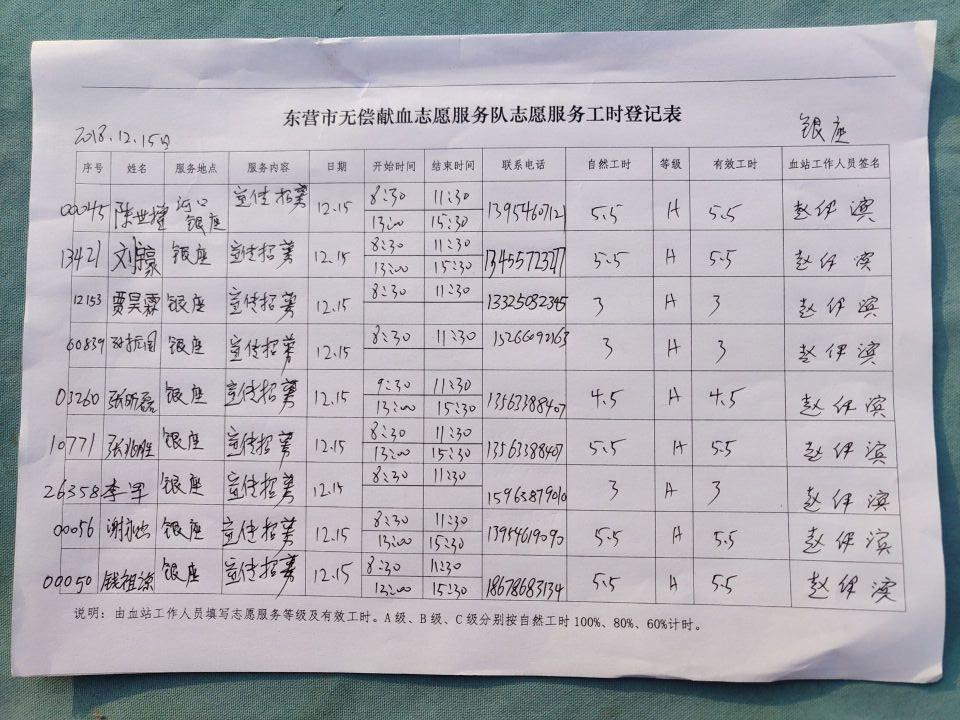 东营市无偿献血志愿服务队志愿服务工时登记表
2018.12.15日 银座
序号 姓名 服务地点 服务内容 日期 开始时间 结束时间 联系电话 自然工时 等级 有效工时 血站工作人员签名
00045 陈世 河口银座 宣传招募 12.15 8:30 11:30 13954607121 5.5 A 5.5 赵伊滨
13:00 15:30
13421 刘 银座 宣传招募 12.15 8:30 11:30 13455723277 5.5 A 5.5 赵伊滨
13:00 15:30
12153 贾昊霖 银座 宣传招募 12.15 8:30 11:30 13325082345 3 A 3 赵伊滨
60839 银座 宣传招募 12.15 8:30 11:30 15266092163 3 A 3 赵伊滨
03260 张昕磊 银座 宣传招募 12.15 9:30 11:30 13563388407 4.5 A 4.5 赵伊滨
13:00 15:30
10771 张兆胜 银座 宣传招募 12.15 8:30 11:30 13563388407 5.5 A 5.5 赵伊滨
13:00 15:30
26358 李军 银座 宣传招募 12.15 8:30 11:30 15963879010 3 A 3 赵伊滨
00056 谢 银座 宣传招募 12.15 8:30 11:30 13954619090 5.5 A 5.5 赵伊滨
13:00 15:30
00050 钱祖 银座 宣传招募 12.15 8:30 11:30 18678683134 5.5 A 5.5 赵伊滨
13:00 15:30
说明：由血站工作人员填写志愿服务等级及有效工时。A级、B级、C级分别按自然工时100%、80%、60%计时。